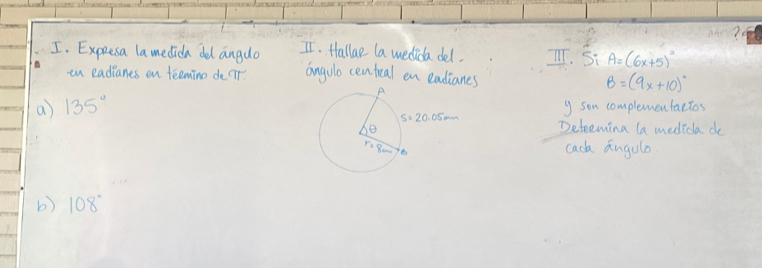 I. Expresa la medida del ángulo
en radianes en término de π
a) 135°
b) 108°
II. Hallar la medida del
ángulo central en radianes
A
S = 20.05 mm
θ
r = 8 mm
B
III. Si A = (6x+5)°
B = (9x+10)°
y son complementarios
Determina la medida de
cada ángulo